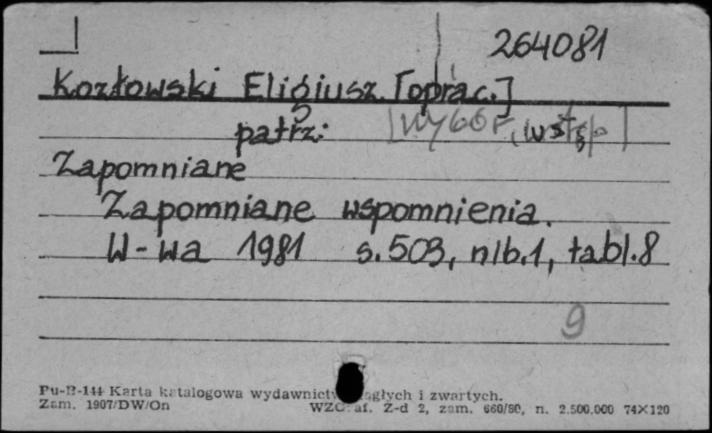 264081
Kozłowski Eligiusz [oprac.]
patrz: [wybór, wstęp]
Zapomniane
Zapomniane wspomnienia.
W-wa 1981 s. 503, nlb. 1, tabl. 8
9
Pu-B-144 Karta katalogowa wydawnictw ciągłych i zwartych.
Zam. 1907/DW/On WZGraf. Z-d 2, zam. 660/80, n. 2.500.000 74×120